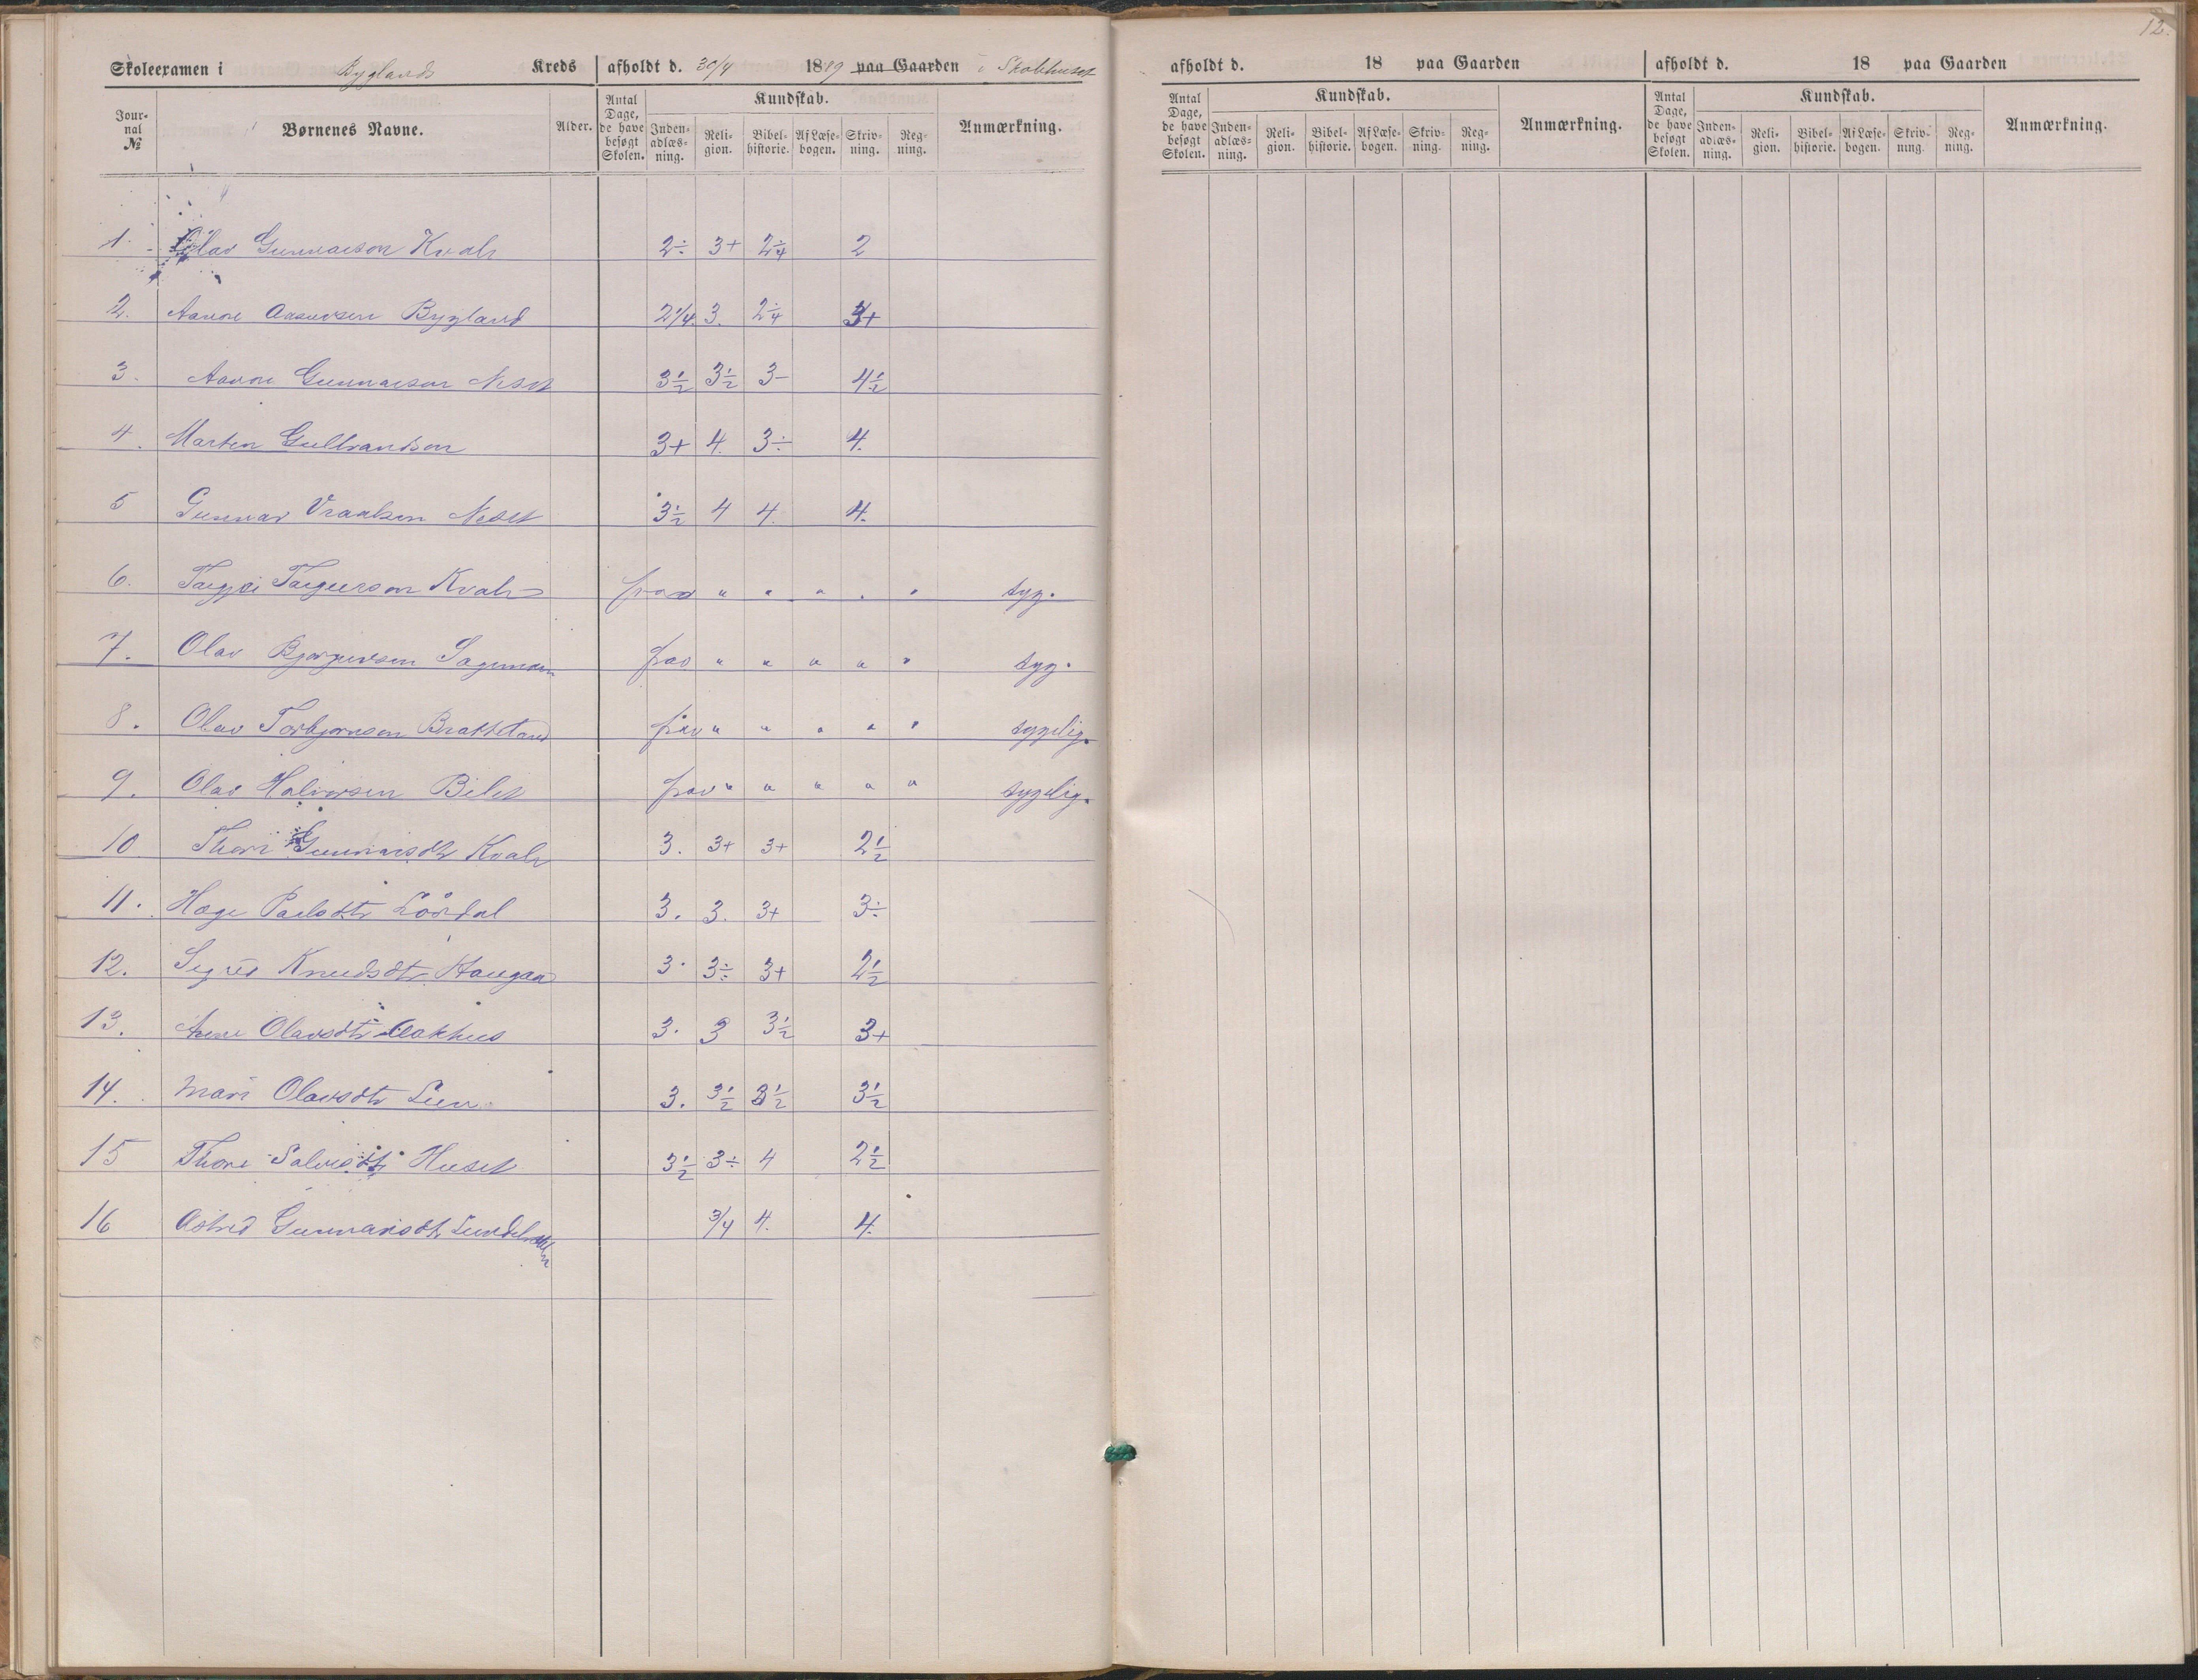 12.
Skoleexamen i Byglands Kreds afholdt d. 30/4 1889 paa Gaarden i Skolehuset
Journal № Børnenes Navne. Alder. Antal Dage, de have besøgt Skolen. Kundskab. Indenadlæsning. Religion. Bibelhistorie. Af Læsebogen. Skrivning. Regning. Anmærkning.
1. Olav Gunnarson Kvale 2÷ 3+ 2¼ 2
2. Aanon Aasuvsen Bygland 2¼ 3. 2¼ 3+
3. Aanon Gunnarson Neset 3½ 3½ 3- 4½
4. Marten Gullvandson 3+ 4. 3÷ 4.
5 Gunnar Vraalsen Neset 3½ 4 4. 4.
6. Targjei Kvale frav " " " " " syg.
7. Olav Bjorguvsen Sagmoen frav " " " " " syg.
8. Olav Torbjornson Brattland frav " " " " " sygelig.
9. Olav Halvorsen frav " " " " " sygelig.
10 Thori Gunnarsdtr Kvale 3. 3+ 3+ 2½
11. Hæge Paalsdtr Lördal 3. 3. 3+ 3÷
12. Sigrid Knudsdtr Haugaa 3. 3÷ 3+ 2½
13. Anne Olavsdtr Aakhus 3. 3 3½ 3+
14. Mari Olavsdtr Lien 3. 3½ 3½ 3½
15 Thone Huset 3½ 3÷ 4 2½
16 Astrid Gunnarsdtr 3/4 4. 4.
afholdt d. 18 paa Gaarden
Antal Dage, de have besøgt Skolen. Kundskab. Indenadlæsning. Religion. Bibelhistorie. Af Læsebogen. Skrivning. Regning. Anmærkning.
afholdt d. 18 paa Gaarden
Antal Dage, de have besøgt Skolen. Kundskab. Indenadlæsning. Religion. Bibelhistorie. Af Læsebogen. Skrivning. Regning. Anmærkning.